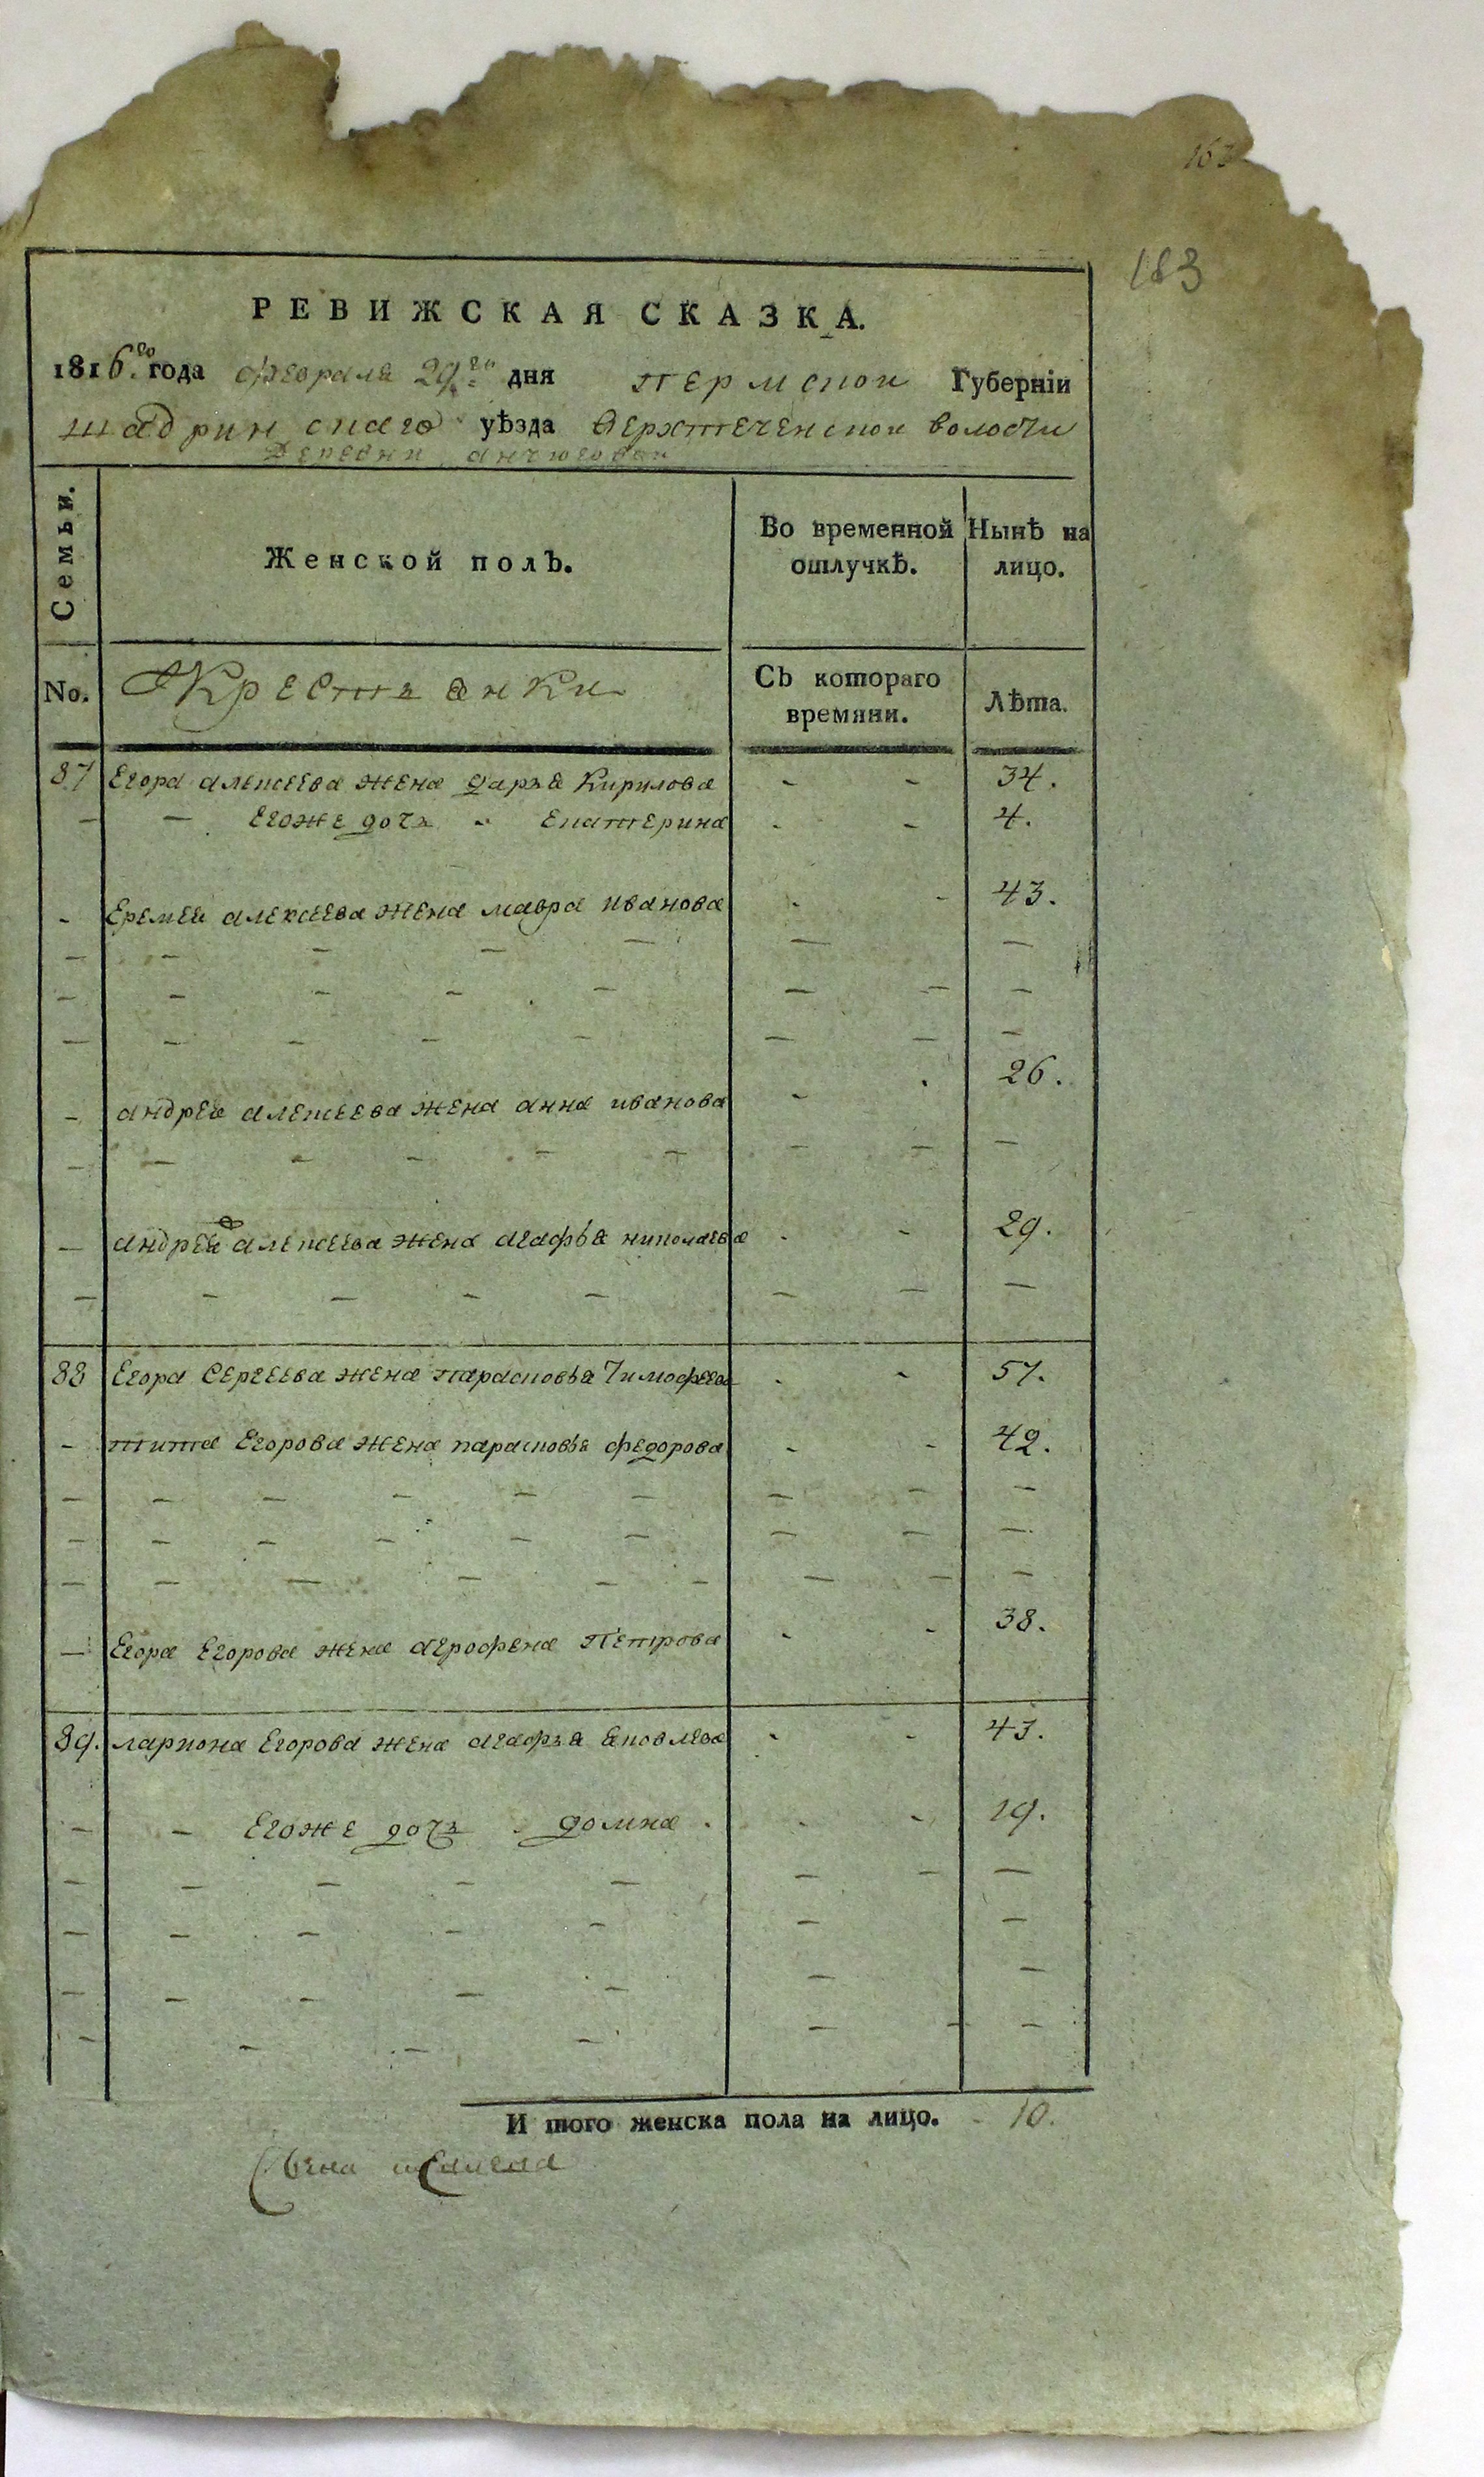 183
РЕВИЖСКАЯ СКАЗКА.
1816.го года февраля 29.го дня Пермской Губерніи
шадринскаго уѣзда верхтеченской волости
деревни анчюговой
Семьи. Женской полъ. Во временной отлучкѣ. Нынѣ на лицо.
No. Крестьянки Съ котораго времяни. Лѣта.
87 Егора алексеева жена дарья Кирилова - - 34.
- - Егоже дочь - Екатерина - - 4.
- Еремея алексеева жена мавра иванова - - 43.
- андрея алексеева жена анна иванова - - 26.
- андрея алексеева жена агафья николаева - - 29.
88 Егора Сергеева жена парасковья Тимофеева - - 57.
- тита Егорова жена парасковья федорова - - 42.
- Егора Егорова жена агрофена Петрова - - 38.
89. лариона Егорова жена агафья яковлева - - 43.
- - Егоже дочь - домна - - 19.
И того женска пола на лицо. - 10.